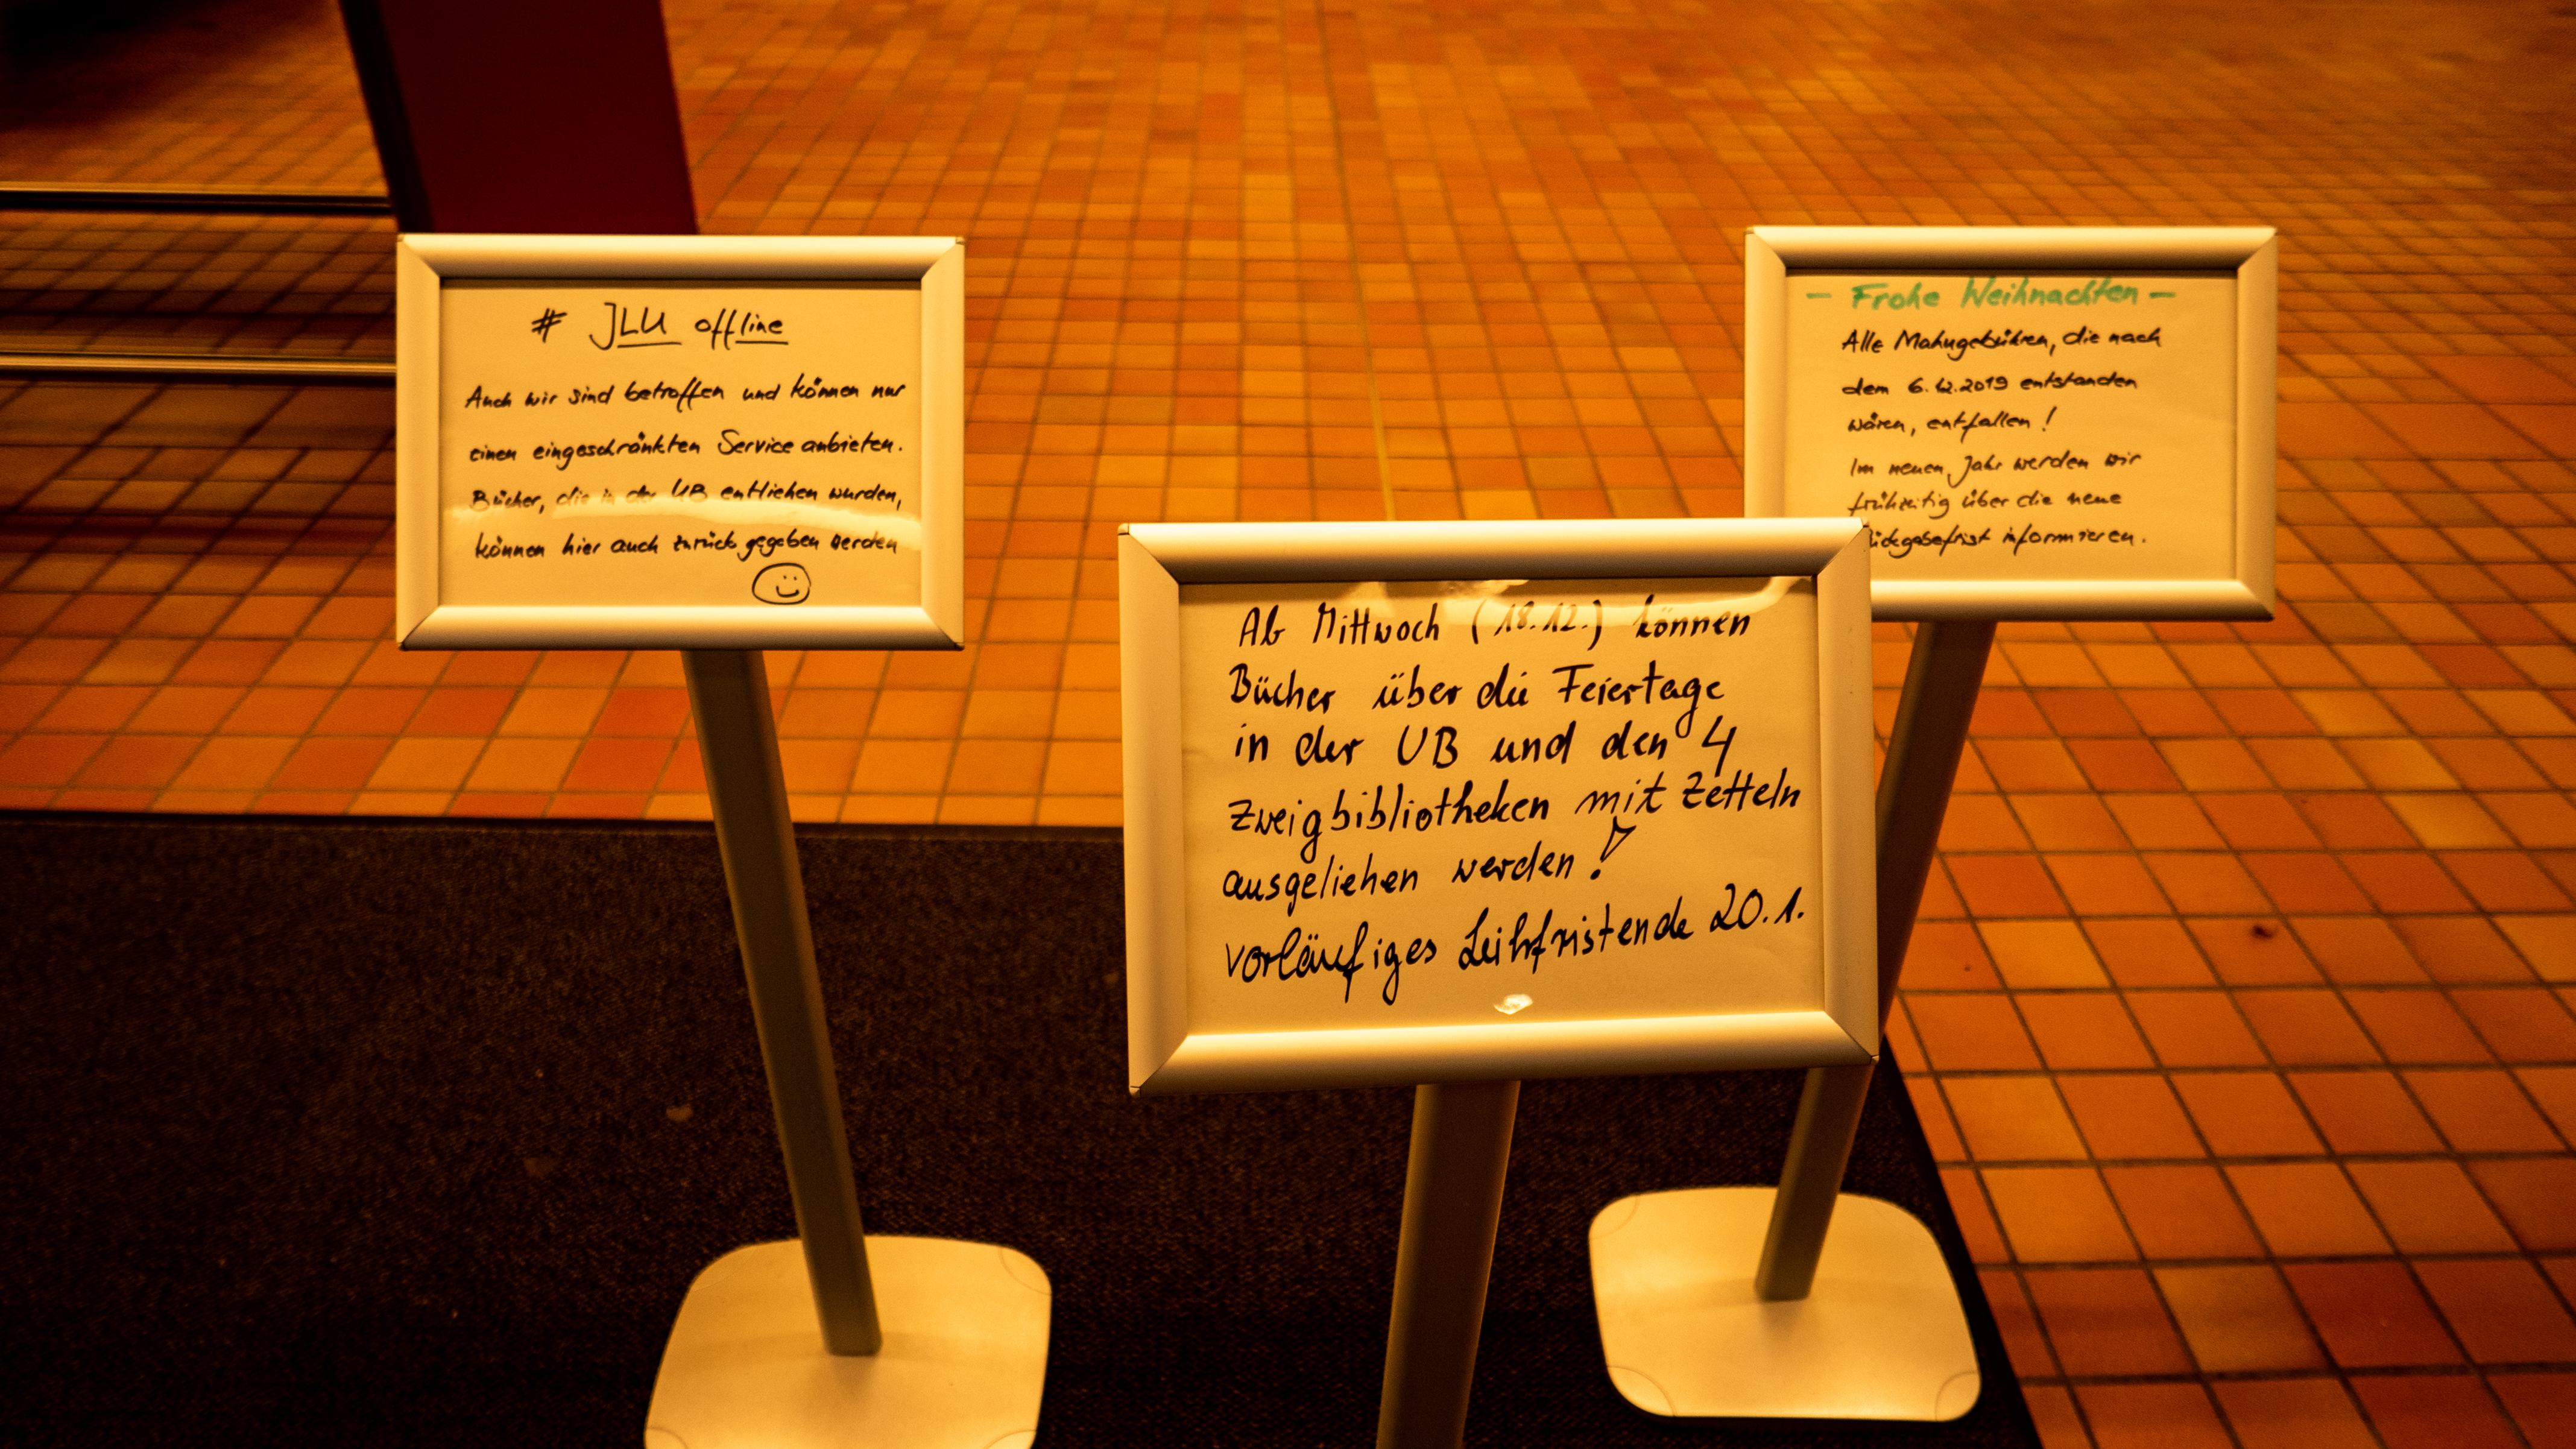 # JLU offline
Auch wir sind betroffen und können nur
einen eingeschränkten Service anbieten.
Bücher, die in der UB entliehen wurden,
können hier auch zurück gegeben werden
Ab Mittwoch (18.12.) können
Bücher über die Feiertage
in der UB und den 4
Zweigbibliotheken mit Zetteln
ausgeliehen werden!
vorläufiges Leihfristende 20.1.
- Frohe Weihnachten -
Alle Mahngebühren, die nach
dem 6.12.2019 entstanden
wären, entfallen!
Im neuen Jahr werden wir
frühzeitig über die neue
ückgabefrist informieren.